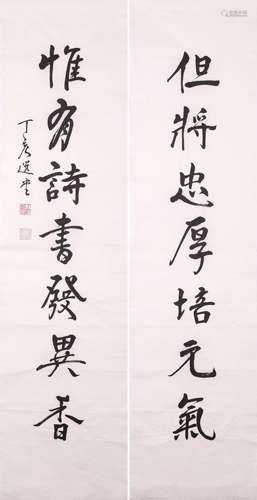 但將忠厚培元氣
惟有詩書發異香
丁亥選堂